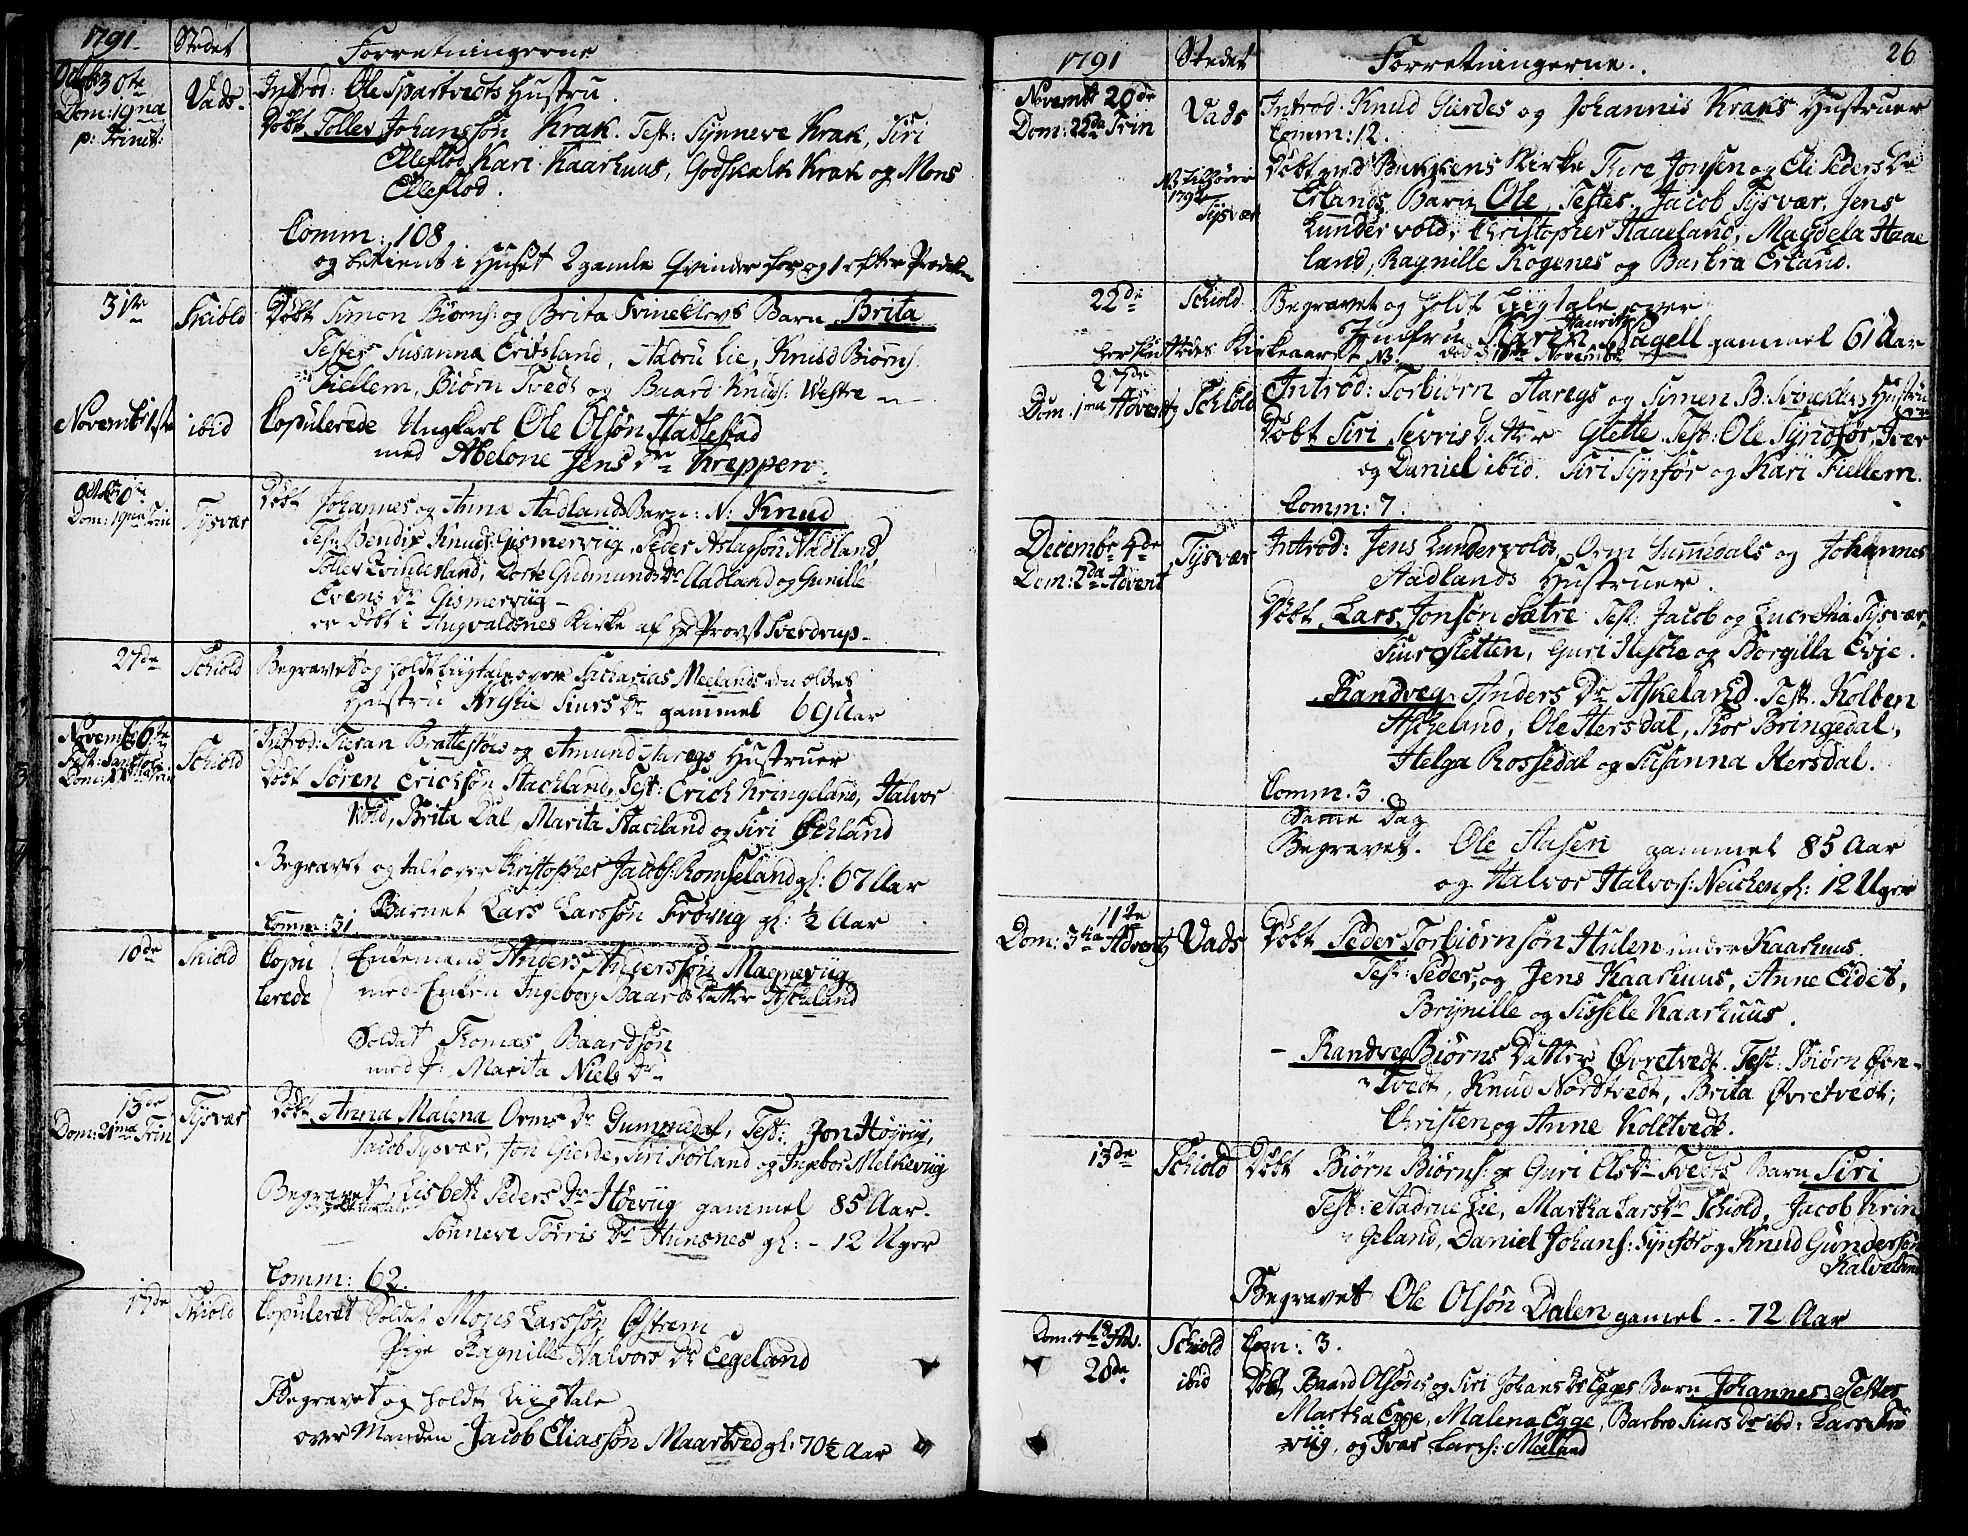 1791. Stedet Forretningerne
Octob: 30te Vads. Introd: Ole Spartvedts Hustru.
Dom: 19ma Døbt Tollev Johanssøn Krak. Test: Synneve Krak, Siri
p: Trinit: Elleflod, Kari Kaarhuus, Godskalk Krak og Mons
Elleflod.
Comm: 108
og betient i Huset 2 gamle Qvinder for og 1 efter Prædiken
31te Skiold Døbt Simon Biørns: og Brita Svineklovs Barn Brita
Testes Susanna Eritsland, Aadru Lie, Knud Biørns.
Fiellem, Biørn Tvedt og Baard Knuds: Westre
Novemb: 1ste ibid Copulerede Ungkarl Ole Olsøn Hadlestad
med Abelone Jens Dr Kreppen.
Octob: 30te Tysvær Døbt Johannes og Anna Aadlands Barn: N: Knud
Dom: 19ma Trin Test: Bendix Knuds: Gismervig, Peder Aslagsøn Nadland
Tollev Qvinderland, Dorte Gudmunds Dr Aadland og Gunille
Evens Dr Gismerviig
er døbt i Augvaldsnes Kirke af Hr Provst Sverdrup.
27de Schiold Begravet og holdt Liigtale over Sacharias Meelands den ældres
Hustru Siurs Dr gammel 69 Aar
Novemb: 6te Schiold Introd: Brattestøes og Amund Aaregs Hustruer
Døbt Søren Erichsøn Stachland, Test: Erich Kringeland, Halvor
Vold, Brita Dal, Marita Staciland og Siri Øchland
Begravet og tal over Christopher Jacobs: Romseland gl: 67 Aar
Barnet Lars Larssøn Frøvig gl: ½ Aar
Comm: 31.
10de Skiold Copu Enkemand Anders Anderssøn Magnevug
lerede med Enken Ingeborg Baards Datter Ascheland
Soldat Thomas Baardsøn
med P: Marita Niels Dr
13de Tysvær Døbt Anna Malena Orms Dr Gummedal, Test: Jon Høyvig,
Dom: 21ma Trin Jacob Tysvær, Jon Gierde, Siri Førland og Ingebor Melkeviig
Begravet Lisbett Peders Dr Høeviig gammel 85 Aar.
Sønneve Torris Dr Hunsnes gl: - 12 Uger
Comm: 62.
17de Skiold Copuleret Soldat Mons Larssøn Østrem
Pige Ragnille Halvors Dr Eegeland
Begravet og holdt Liigtale
over Manden Jacob Eliassøn Maartved gl: 70½ Aar
1791 Stedet Forretningerne. 26
Novemb: 20de Vads Introd. Knud Gierdes og Johannis Kraks Hustruer
Dom: 22da Trin Comm: 12.
Døbt ved Bukkens Kirke Tore Jonsen og Eli Peders Dr
1792 Tysvær Erlands Barn Ole, Testes. Jacob Tysvær, Jens
Lundervold, Christopher Haaeland, Magdela Haae
land, Ragnille Kogenes og Barbra Erland.
22de Schiold Begravet og holdt Liigtale over
Jomfru Karen Pagell gammel 61 Aar
27de Introd: Torbiørn Aaregs og Simen B: Svineklovs Hustru
Dom: 1ma Advent Schiold Døbt Siri Sevris Datter Glette. Test: Ole Syndfør, Iver
og Daniel ibid. Siri Synfør og Kari Fiellem.
Comm: 7.
Decembr 4de Tysvær Introd: Jens Lundervolds, Orm Gummedals og Johannes
Dom: 2da Advent Aadlands Hustruer.
Døbt Lars Jonsøn Sætre Test: Jacob og Lucretia Tysvær,
Siur Sletten, Guri Nesche og Borgilla Evje.
Randveg Anders Dr Askeland. Test. Kolben
Ascheland, Ole Hersdal, Tor Bringedal,
Helga Rossedal og Susanna Hersdal.
Comm. 3.
Same Dag
Begravet. Ole Aasen gammel 85 Aar
og Halvor Halvors: Neichen gl: 12 Uger
11te Vads Døbt Peder Torbiørnsøn Hulen under Kaarhuus
Dom: 3tia Advent Test: Peder, og Jens Kaarhuus, Anne Eidet,
Brynille og Sissele Kaarhuus.
- Randveg Biørns Datter Øvretvedt. Test: Biørn Øvre-
Tvedt, Knud Nordtvedt, Brita Øvretvedt;
Christen og Anne Koltvedt.
13de Schiold Døbt Biørn Biørns: og Guri Ols Dr Tvedts Barn Siri
Test: Aadrue Lie, Martha Lars Dr Schiold, Jacob Krin
geland, Daniel Johans: Synfør og Knud Gundersen
Kalveland
Begravet Ole Olsøn Dalen gamel .. 72 Aar
Dom: 4ta Adv. Schiold Com: 3.
28de ibid Døbt Baard Olsøns og Siri Johans Dr Egges Barn Johannes. Testes
Martha Egge, Malena Egge, Barbro Siurs Dr ibd: Lars Frø
viig, og Ivar Lars: Mæland